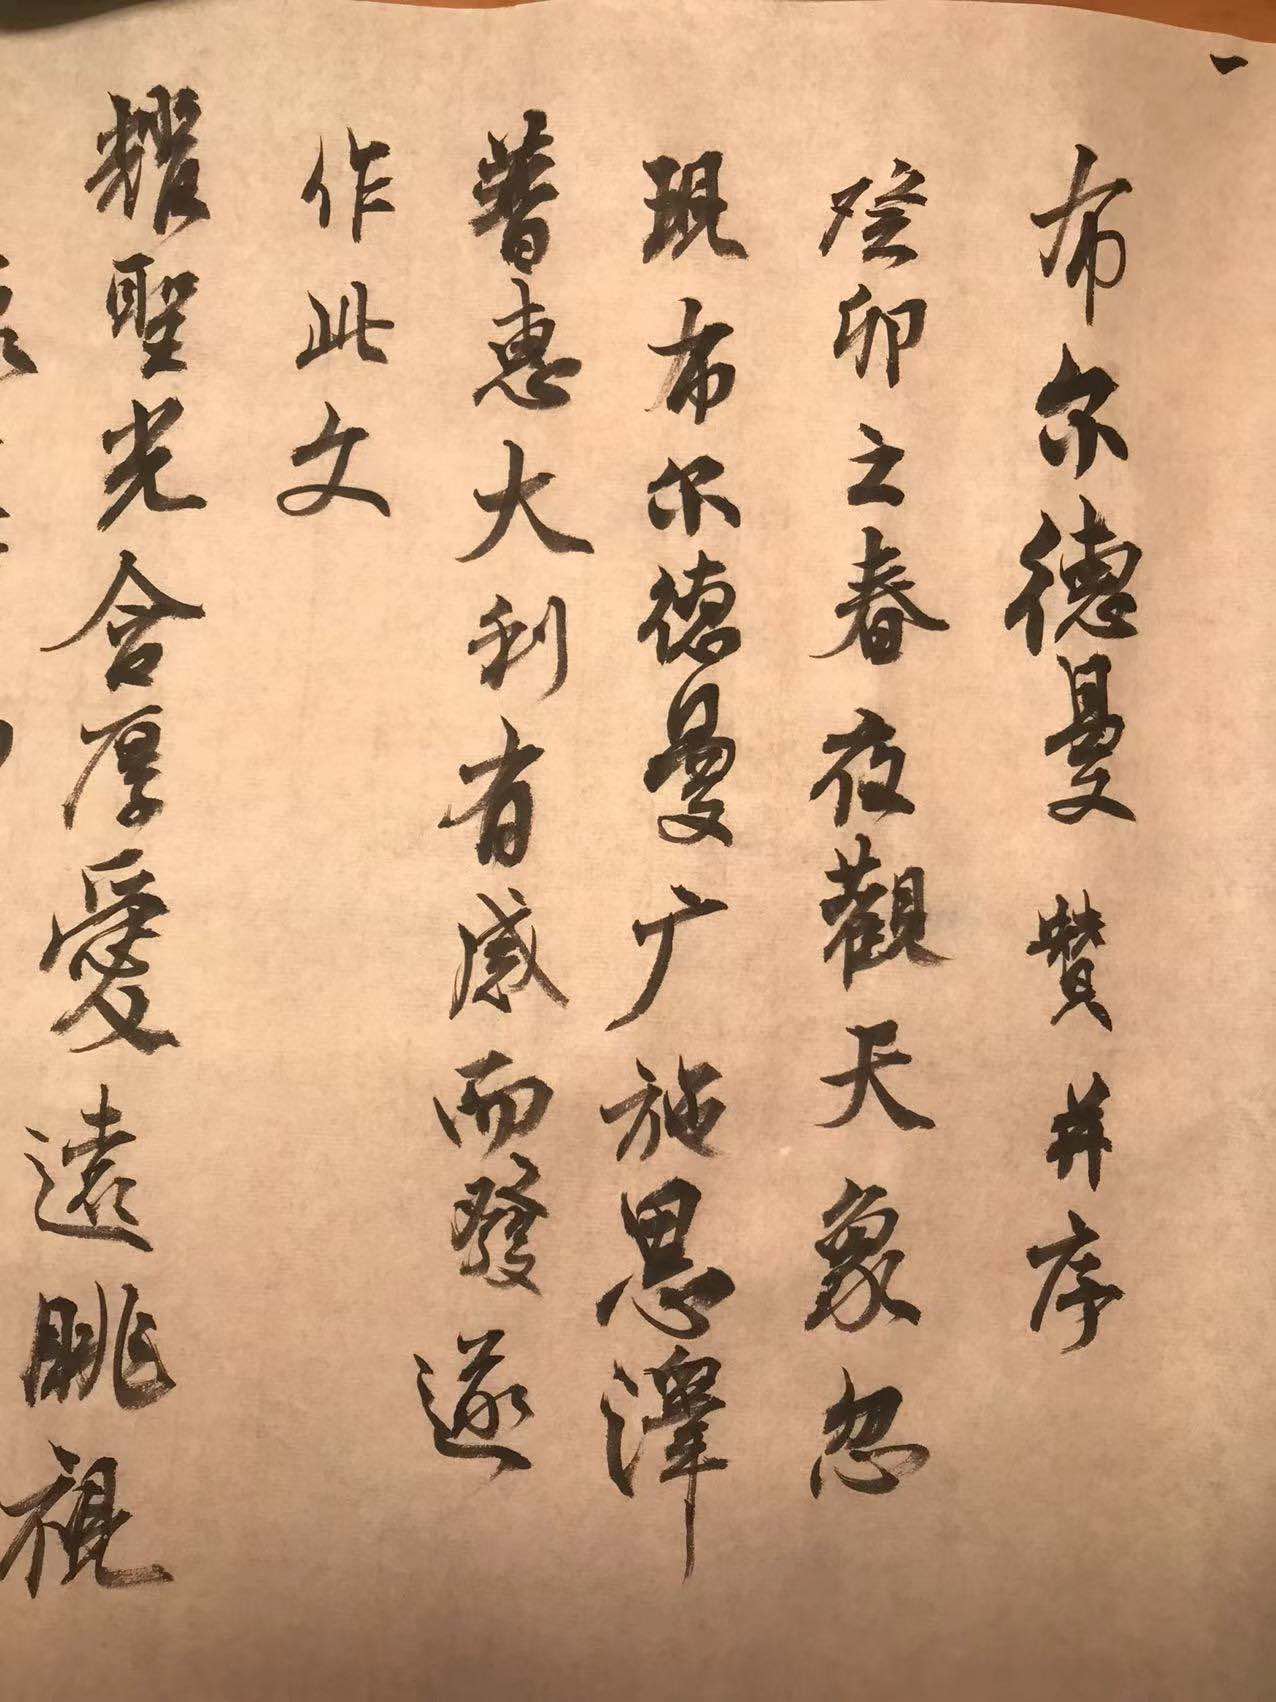 布尔德曼 赞并序
癸卯之春夜觀天象忽
現布尔德曼广施恩澤
普惠大利有感而發遂
作此文
耀聖光含厚愛遠眺視